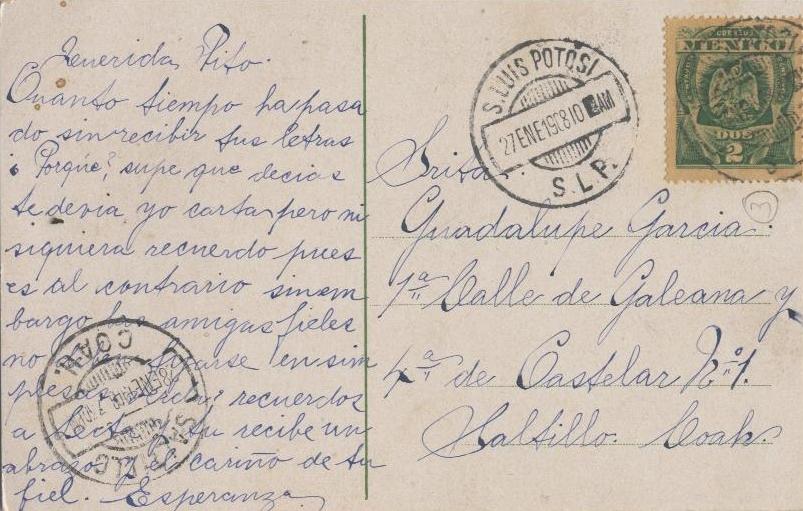 Querida Pito.
Cuanto tiempo ha pasa
do sin recibir tus letras
¿Porque? supe que decias
te devia yo carta pero ni
siquiera recuerdo pues
es al contrario sinem
bargo las amigas fieles
no fijarse en sim
presas recuerdos
a tu recibe un
abrazo y el cariño de tu
fiel. Esperanza
S. LUIS POTOSI
27 ENE 1908 10 AM
S. L. P.
CORREOS
MEXICO
DOS
2
3
Srita
Guadalupe Garcia.
1ª Calle de Galeana y
4ª de Castelar Nº 1.
Saltillo. Coah.
SALTILLO
COAH.